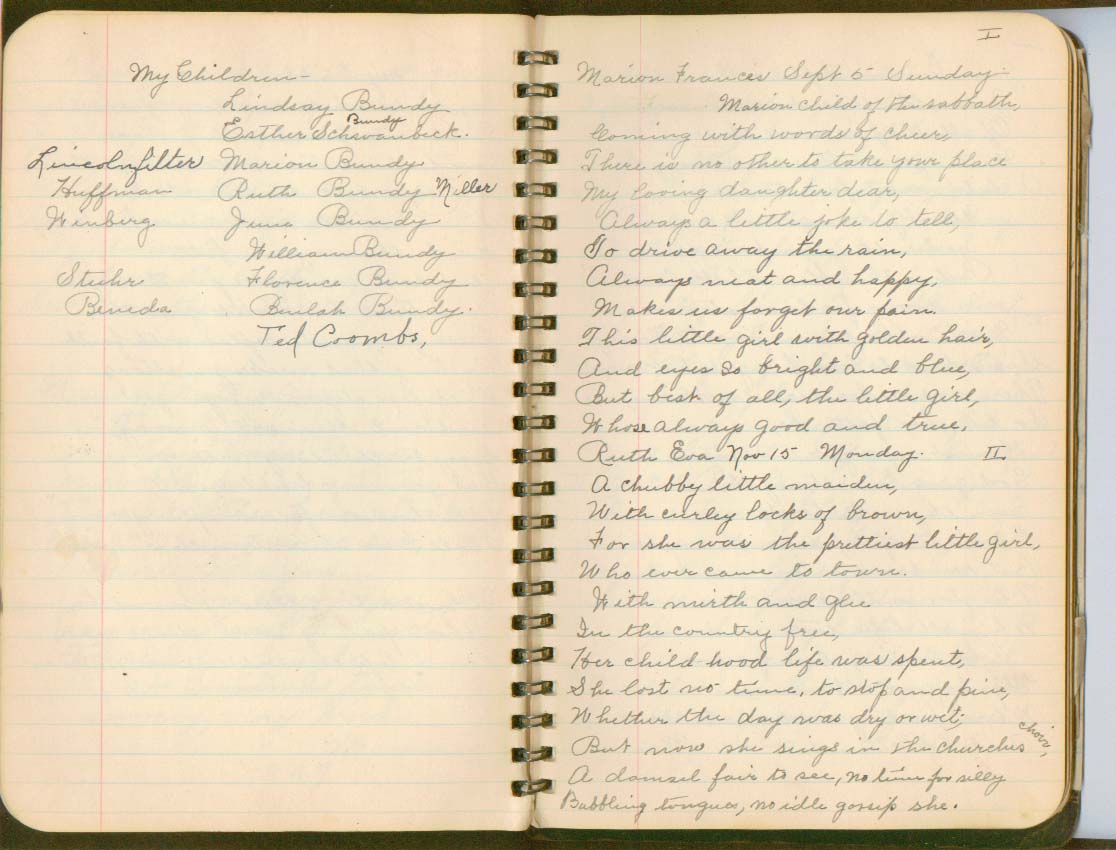 My Children-
Lindsay Bundy
Bundy
Esther Schwanbeck.
Lincolnfilter Marion Bundy
Huffman Ruth Bundy Miller
Winberg June Bundy
William Bundy
Stuhr Florence Bundy
Beneda Beulah Bundy.
Ted Coombs,
I
Marion Frances Sept 5 Sunday.
Marion child of the sabbath,
Coming with words of cheer,
There is no other to take your place
My loving daughter dear,
Always a little joke to tell,
To drive away the rain,
Always neat and happy,
Makes us forget our pain.
This little girl with golden hair,
And eyes so bright and blue,
But best of all, the little girl,
Whose always good and true,
Ruth Eva Nov 15 Monday. II
A chubby little maiden,
With curley locks of brown,
For she was the prettiest little girl,
Who ever came to town.
With mirth and glee
In the country free,
Her child hood life was spent,
She lost no time, to stop and pine,
Whether the day was dry or wet;
But now she sings in the churches choir,
A damsel fair to see, no time for silly
Babbling tongues, no idle gossip she.